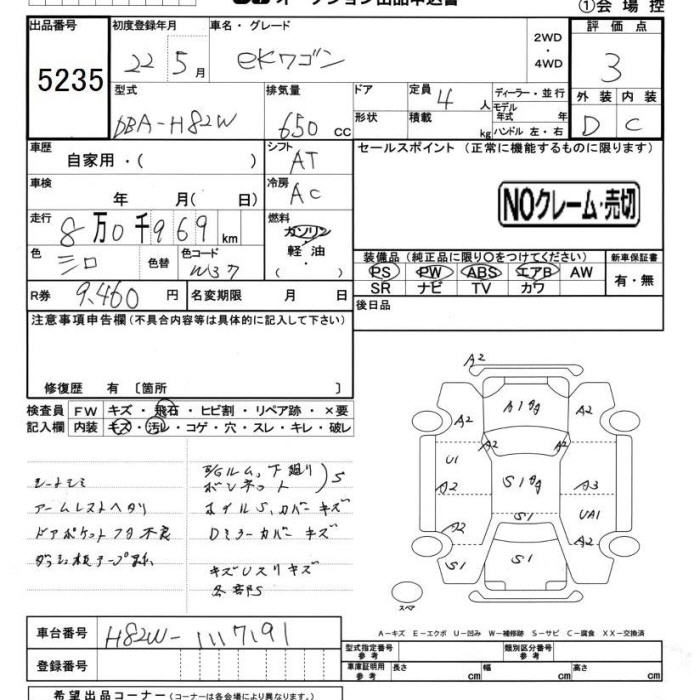 オークション出品申込書
①会場控
出品番号 初度登録年月 車名・グレード 評価点
5235 22 5月 eKワゴン 2WD ・ 4WD 3
型式 排気量 ドア 定員 4人 ディーラー・並行 外装 内装
DBA-H82W 650 cc 形状 積載 kg モデル年式 年 ハンドル 左・右 D C
車歴 自家用・( ) シフト AT セールスポイント (正常に機能するものに限ります)
車検 年 月( 日) 冷房 AC
NOクレーム・売切
走行 8万0千969 km 燃料 ガソリン・軽油 ( )
色 シロ 色替 色コード W37
装備品 (純正品に限り○をつけてください) 新車保証書
PS PW ABS エアB AW 有・無
SR ナビ TV カワ
R券 9,460 円 名変期限 月 日 後日品
注意事項申告欄 (不具合内容等は具体的に記入して下さい)
修復歴 有 〔箇所 〕
検査員 FW キズ・飛石・ヒビ割・リペア跡・×要
記入欄 内装 キズ・汚レ・コゲ・穴・スレ・キレ・破レ
シートシミ
アームレストヘタリ
ドアポケットフタ不良
E/Gルム、下廻り
ボンネット )S
ホイルS、カバーキズ
Dミラーカバーキズ
キズUスリキズ
各部S
A2
A2 A1 A2
U1 A2
A2 S1 A3
A2 S1 UA1
A2
S1 S1 S1
スペア
A-キズ E-エクボ U-凹み W-補修跡 S-サビ C-腐食 XX-交換済
車台番号 H82W-1117191
登録番号
型式指定番号 参考 類別区分番号 参考
車庫証明用 参考 長さ cm 幅 cm 高さ cm
希望出品コーナー (コーナーは各会場により異なります)